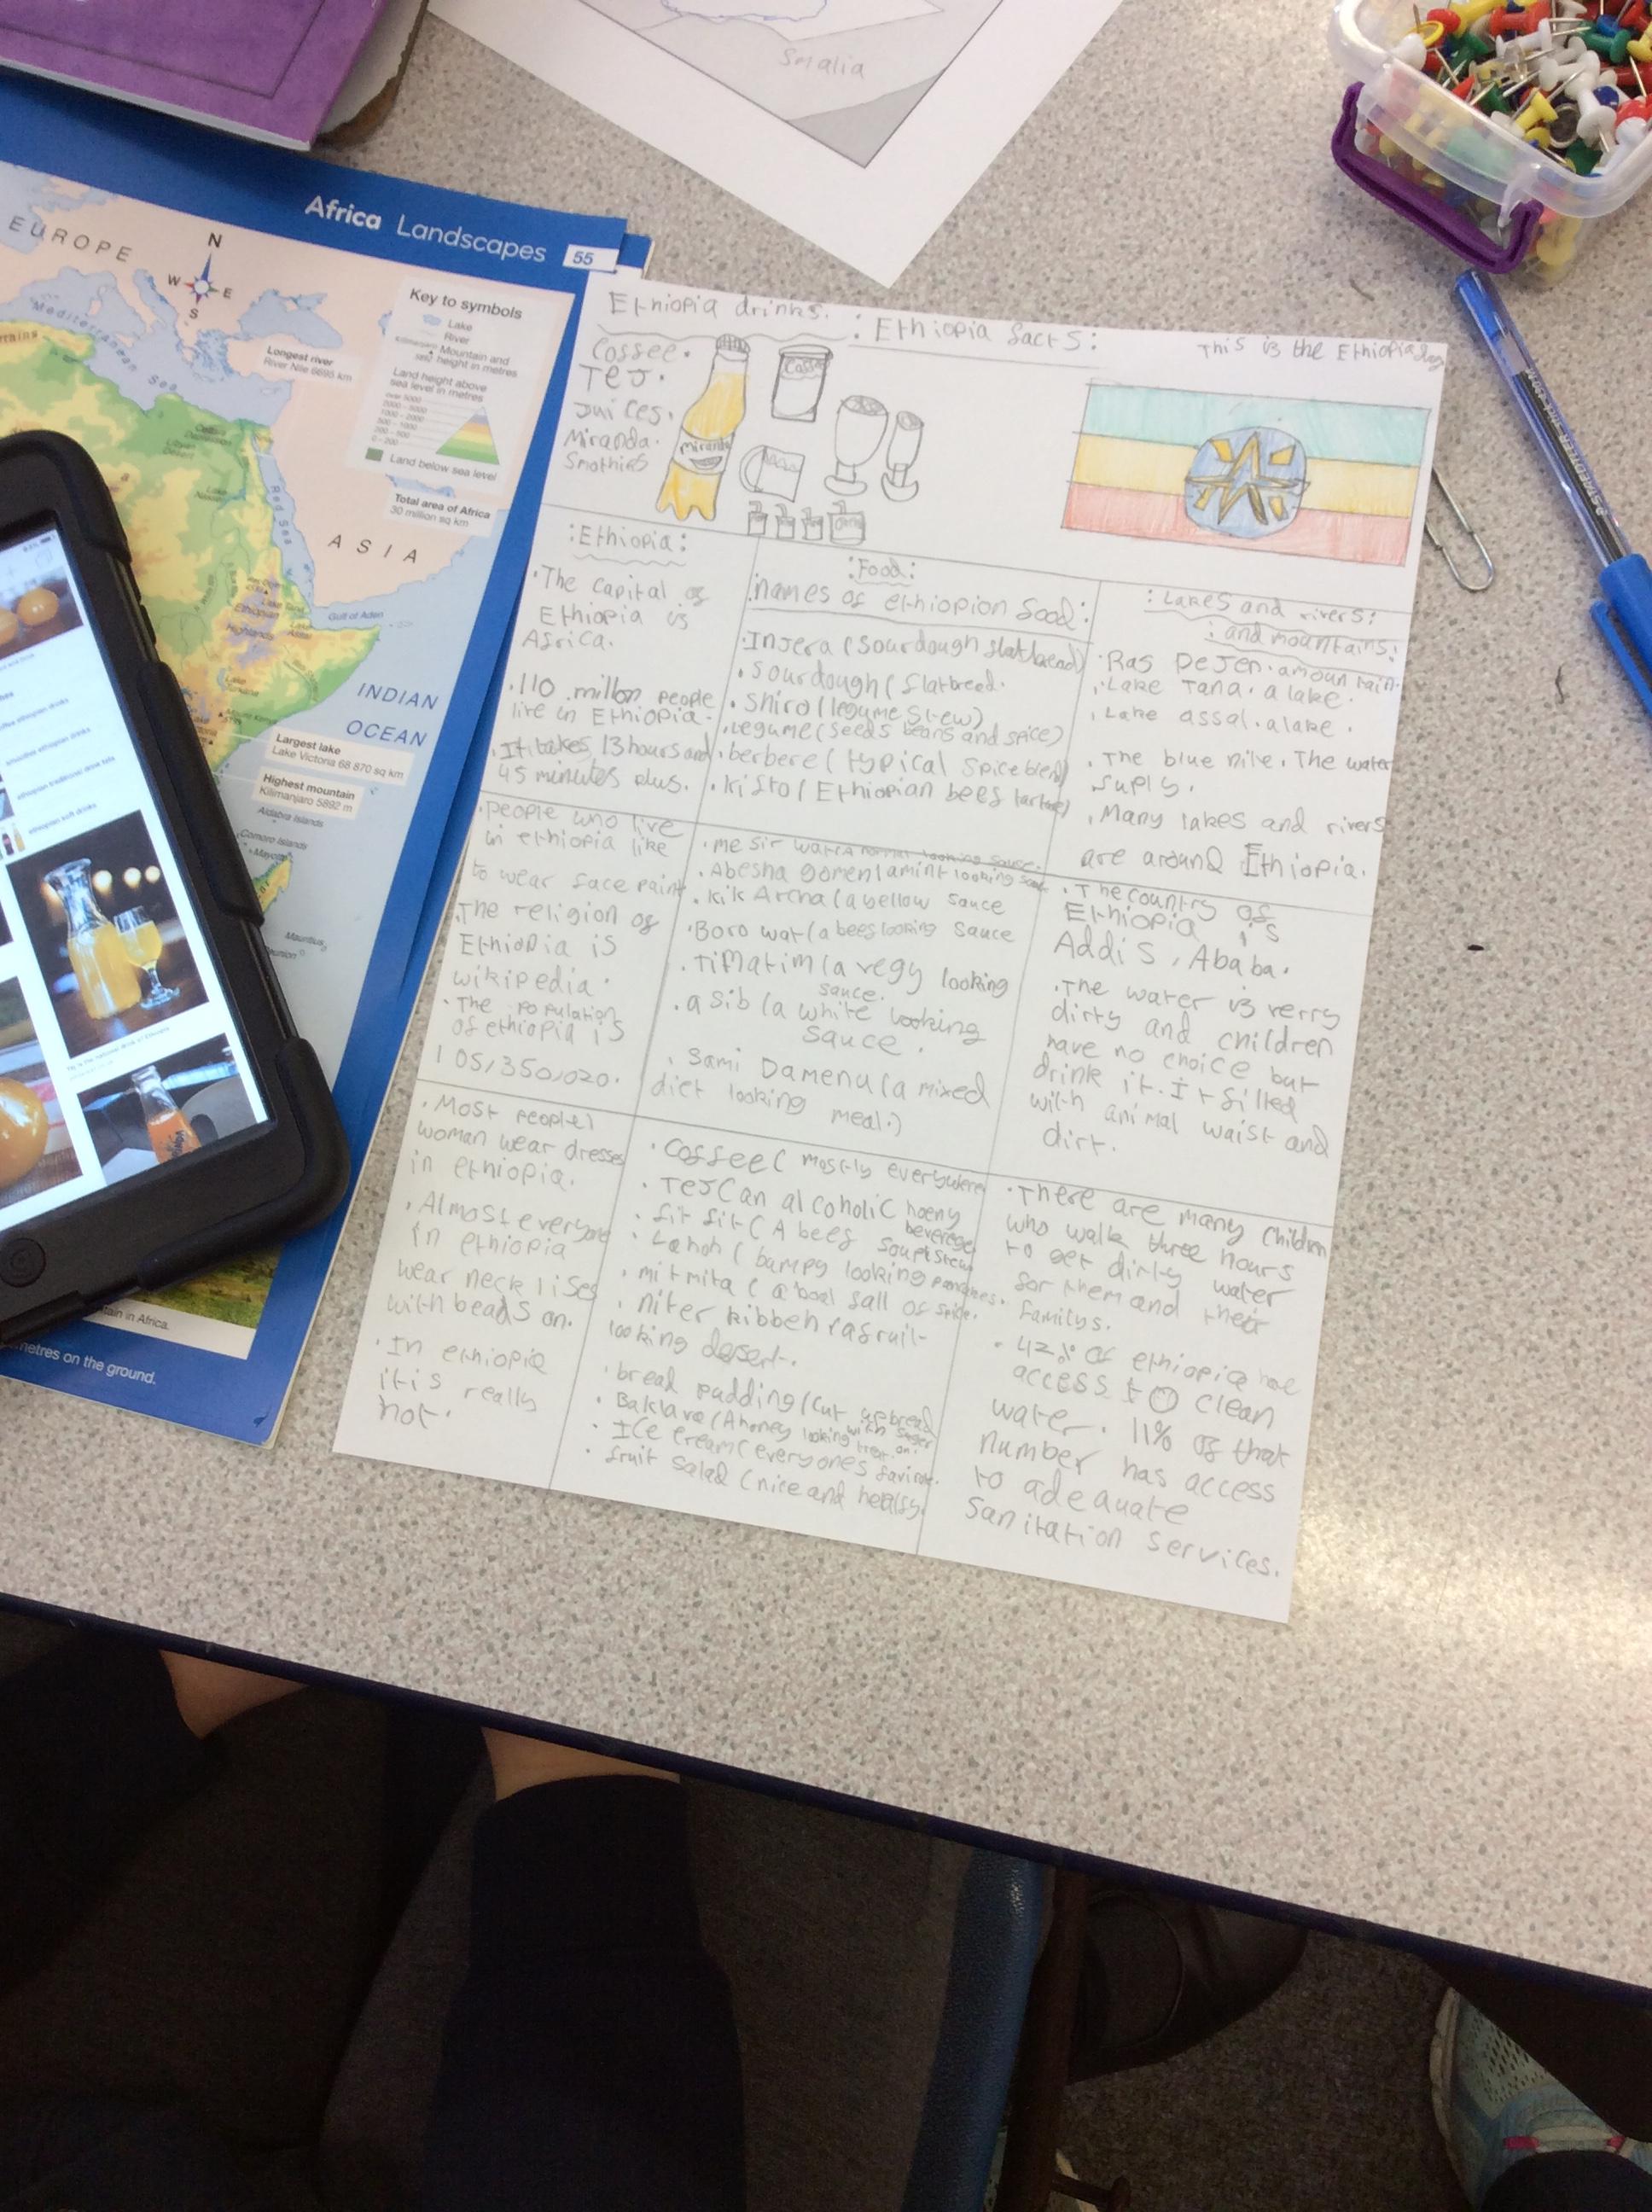 Smalia
Africa Landscapes
55
EUROPE
N
W
E
S
Mediterranean
Sea
Longest river
River Nile 6695 km
Key to symbols
Lake
River
Mountain and
height in metres
Land height above
sea level in metres
Land below sea level
Total area of Africa
30 million sq km
ASIA
Red Sea
Gulf of Aden
Ethiopian
Highlands
INDIAN
OCEAN
Largest lake
Lake Victoria 68 870 sq km
Highest mountain
Kilimanjaro 5892 m
Aldabra Islands
Comoro Islands
Mauritius
tain in Africa.
metres on the ground.
ethiopian drinks
smoothie ethiopian drinks
ethiopian traditional drink tella
ethiopian soft drinks
Ethiopia drinks.
Coffee.
TeJ.
Juices.
Miranda.
Smothies
Miranda
Coffee
: Ethiopia facts:
This is the Ethiopia flag
:Ethiopia:
·The Capital of
Ethiopia is
Africa.
·110 millon people
live in Ethiopia.
·It takes 13 hours and
45 minutes plus.
·people who live
in ethiopia like
to wear face paint
·The religion of
Ethiopia is
wikipedia.
·The population
of ethiopia is
105,350,020.
·Most people)
woman wear dresses
in ethiopia.
·Almost everyone
in ethiopia
wear neck lises
with beads on.
·In ethiopia
it is really
hot.
:Food:
:names of ethiopion food:
·Injera (sourdough flatbread)
·sourdough (flatbread.
·Shiro (legume stew)
·Legume (seeds beans and spice)
·berbere (typical spice blend)
·kisto (Ethiopian beef tartare)
·me sir wat (A normal looking sause.
·Abesha gomen (a mint looking
·kik Archa (a bellow sauce
·Boro wat (a beef looking sauce
·Timatim (a vegy looking
sauce.
·asib (a white looking
sauce.
·Sami Damenu (a mixed
diet looking meal.)
·Coffee (mostly everywhere
·TeJ (an alcoholic hoeny
beverege
·fit fit (A beef soup stew
·Lahoh (bumpy looking pancakes.
·mitmita (a boal full of spice.
·niter kibbeh (a fruit-
looking desert.
·bread pudding (Cut up bread
with suger
·Baklava (A honey looking treat
on.
·Ice cream (everyones favirote.
·fruit salad (nice and healfy.
:Lakes and rivers:
:and mountains:
·Ras DeJen. a mountain.
·Lake Tana. a lake.
·Lake assal. a lake.
·The blue nile. The water
suply.
·Many lakes and rivers
are around Ethiopia.
·The country of
Ethiopia is
Addis, Ababa.
·The water is verry
dirty and children
have no choice but
drink it. It filled
with animal waist and
dirt.
·There are many children
who walk three hours
to get dirty water
for them and their
familys.
·42% of ethiopia hae
access to clean
water. 11% of that
number has access
to adequate
Sanitation services.